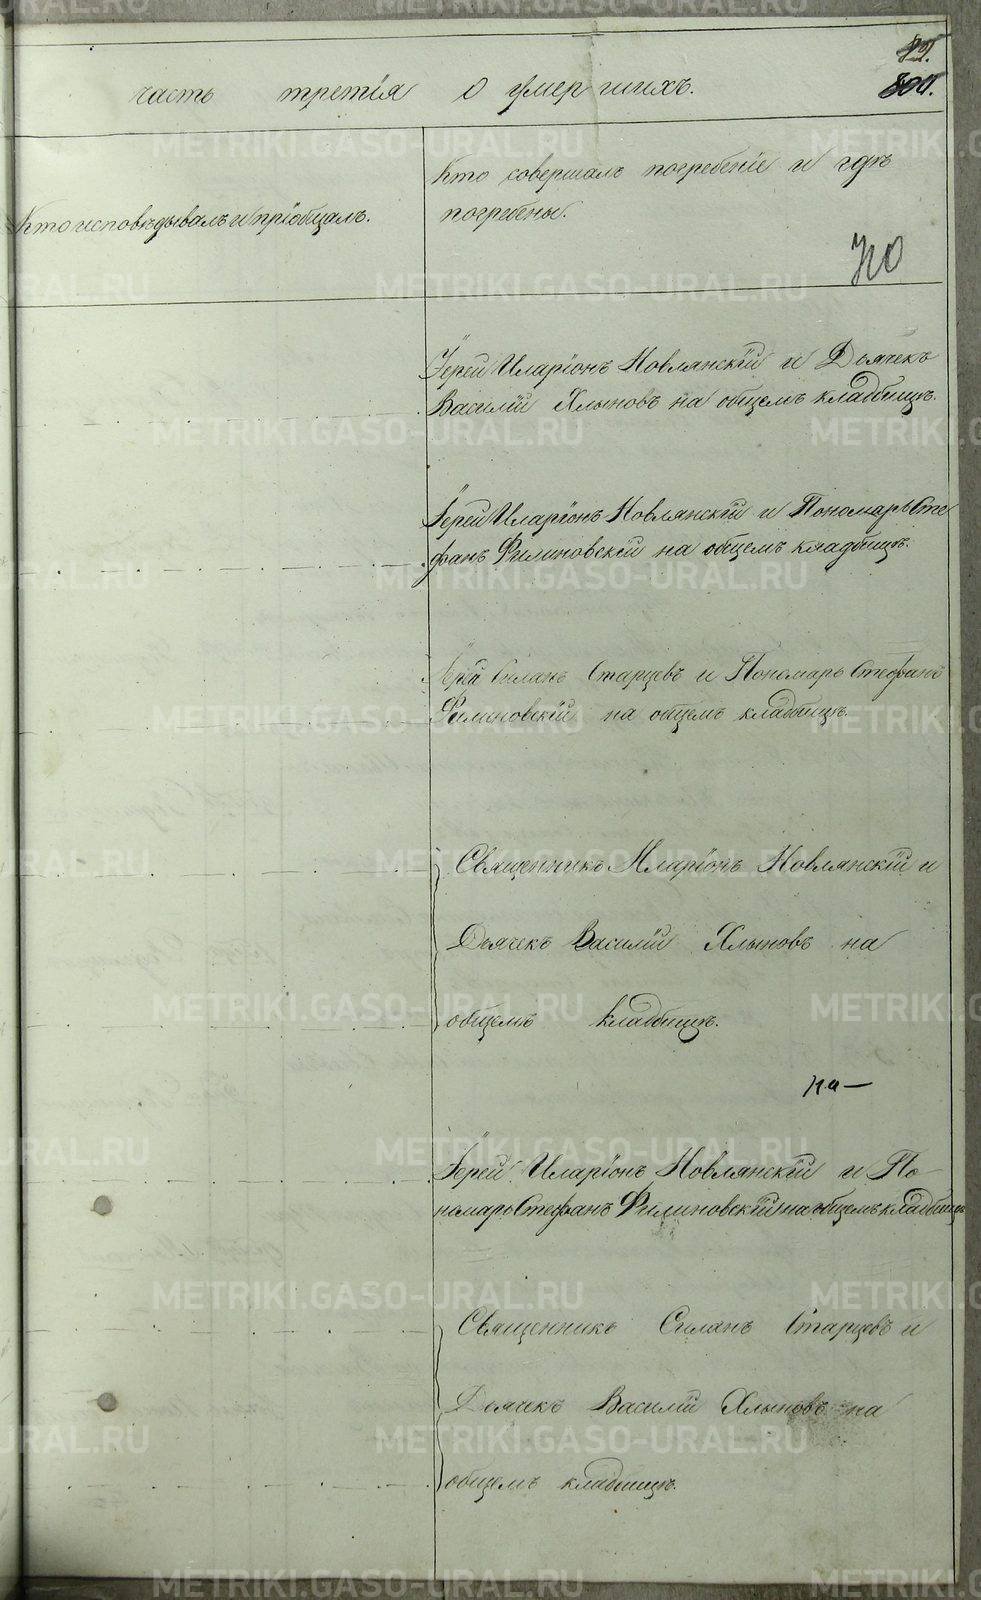 82.
800.
часть третія о умершихъ.
Кто исповѣдывалъ и пріобщалъ.
Кто совершалъ погребеніе и гдѣ
погребены.
Іерей Иларіонъ Новлянскій и Дьячекъ
Василій Хлыновъ на общемъ кладбищѣ.
Іерей Иларіонъ Новлянскій и Пономарь Сте
фанъ Филиновскій на общемъ кладбищѣ.
Іерей Силанъ Старцевъ и Пономарь Стефанъ
Филиновскій на общемъ кладбищѣ.
Священникъ Иларіонъ Новлянскій и
Дьячекъ Василій Хлыновъ на
общемъ кладбищѣ.
Іерей Иларіонъ Новлянскій и По-
номарь Стефанъ Филиновскій на общемъ кладбищѣ
Священникъ Силанъ Старцевъ и
Дьячекъ Василій Хлыновъ на
общемъ кладбищѣ.
METRIKI.GASO-URAL.RU